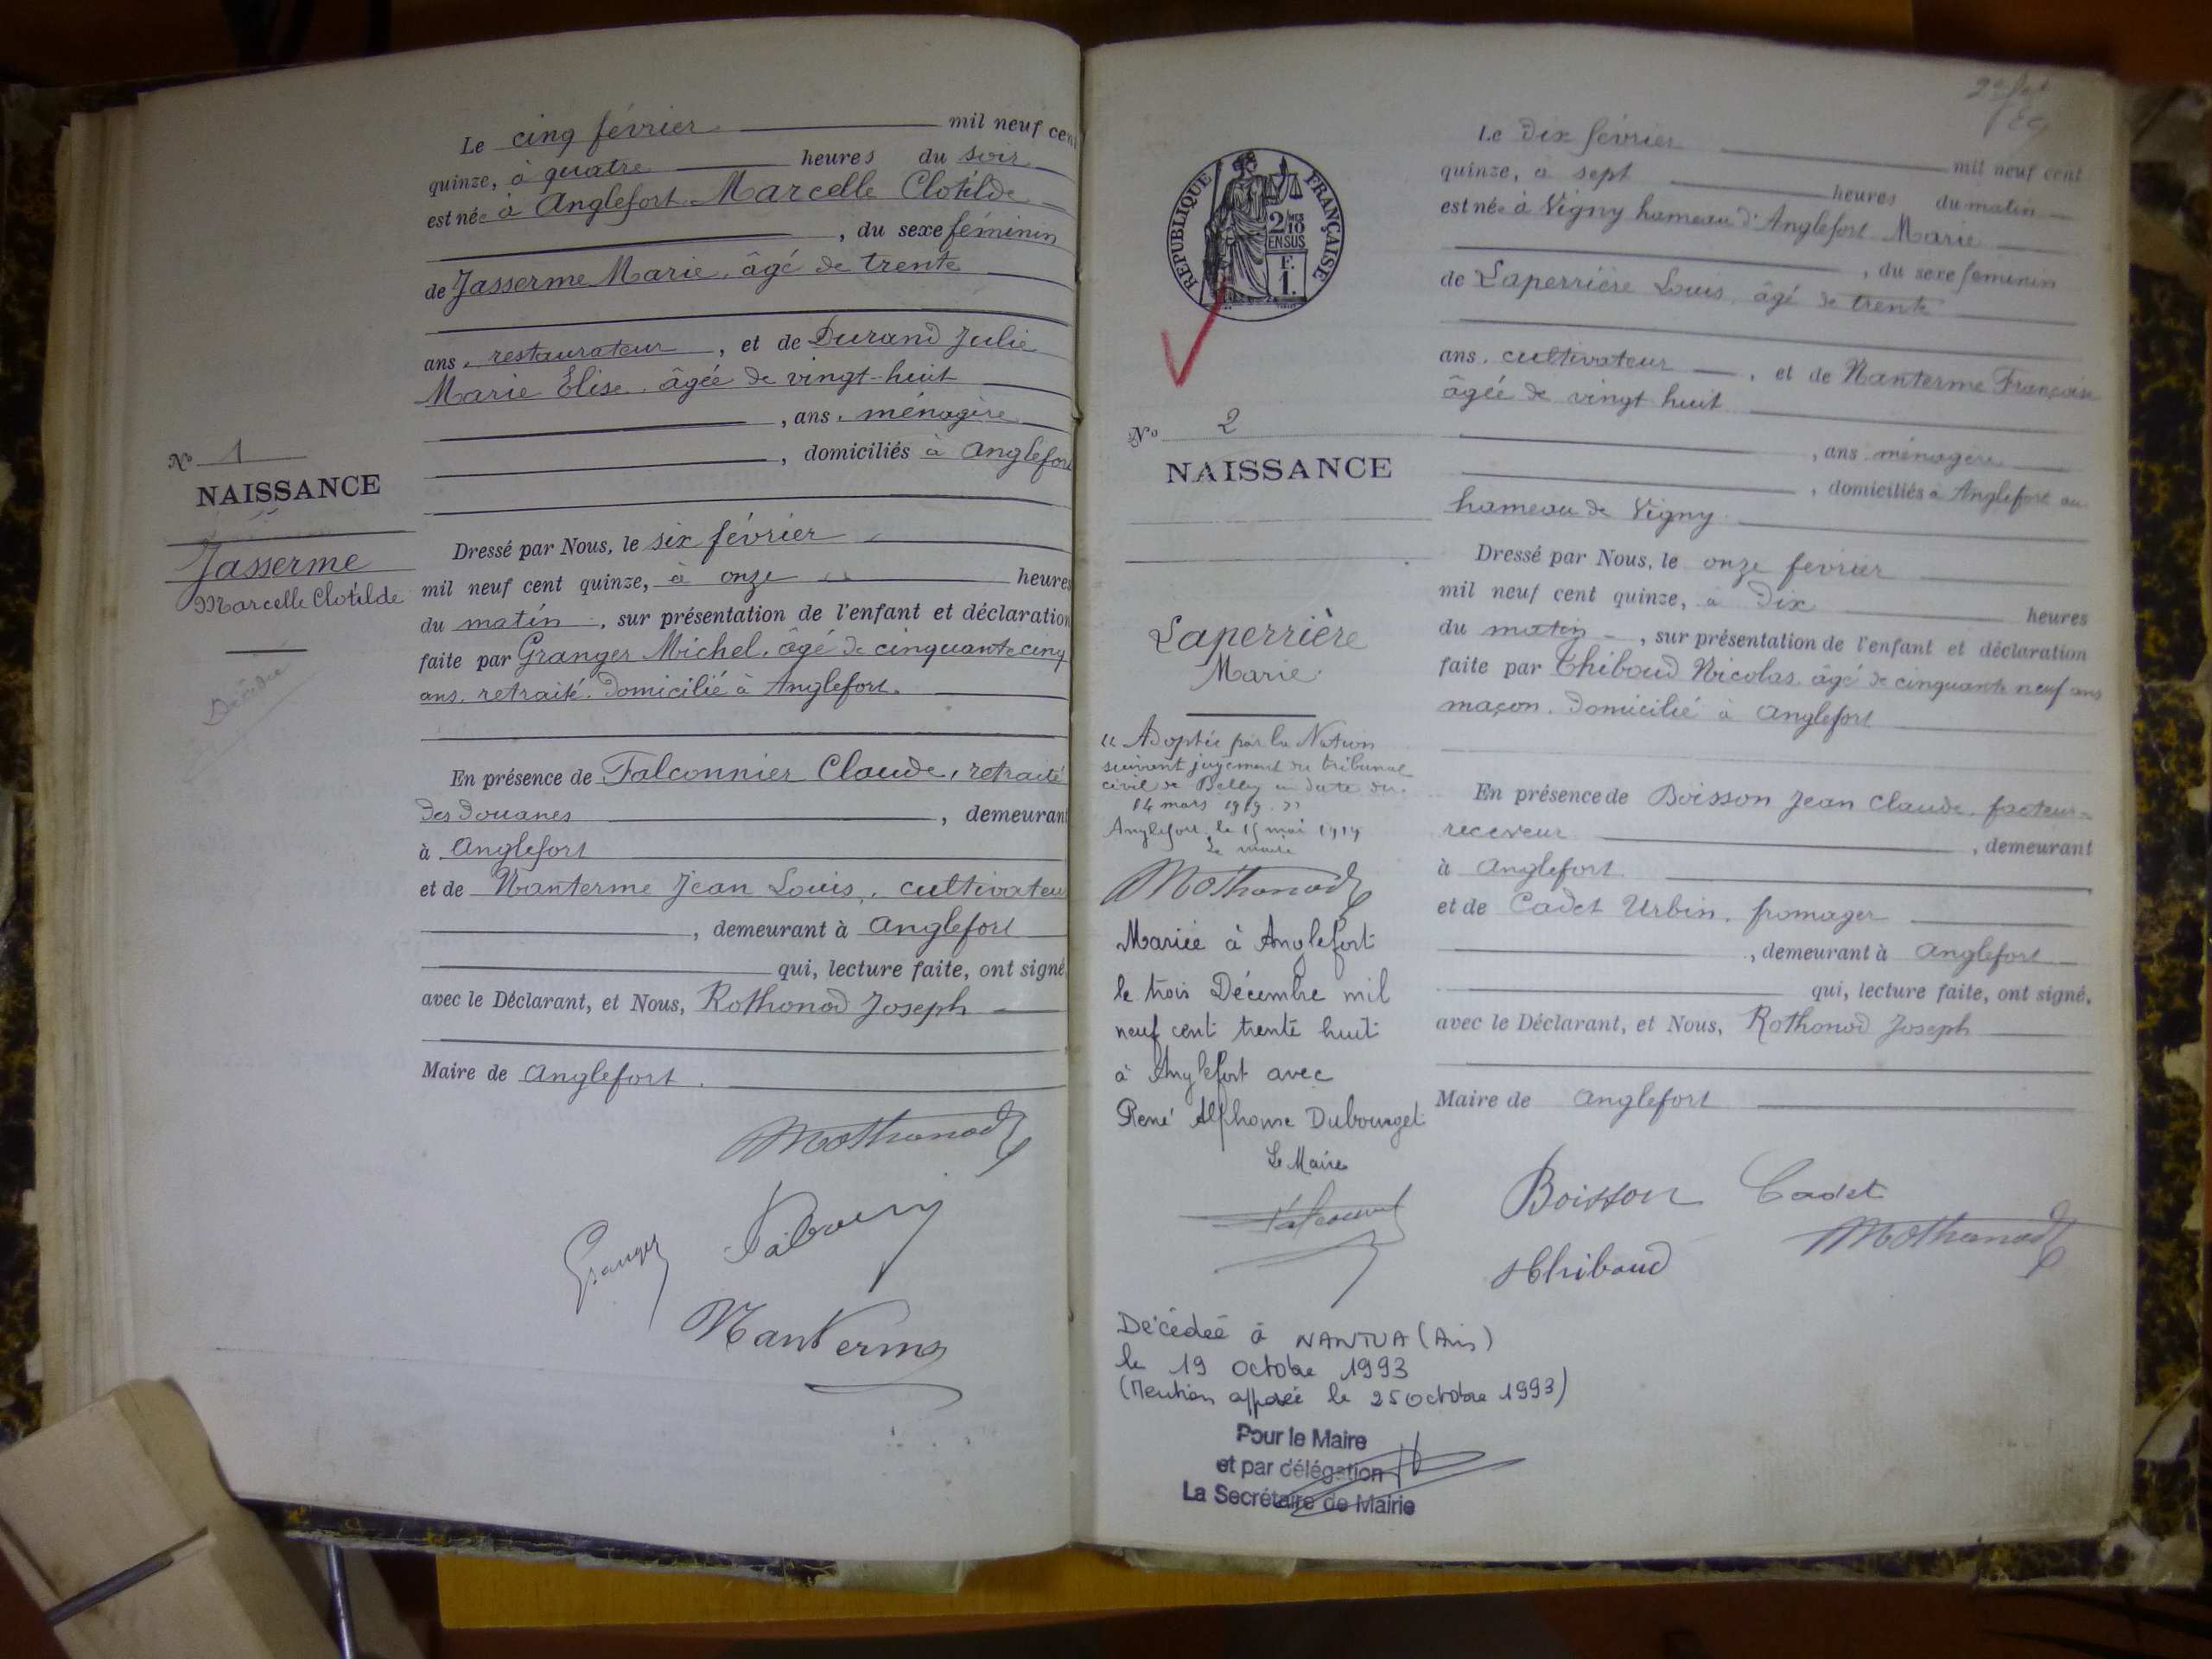 Le cinq février mil neuf cent
quinze, à quatre heures du soir
est née à Anglefort Marcelle Clotilde
, du sexe féminin
de Jasserme Marie, âgé de trente
ans, restaurateur, et de Durand Julie
Marie Elise, âgée de vingt-huit
, ans, ménagère
, domiciliés à Anglefort
Nº 1
NAISSANCE
Jasserme
Marcelle Clotilde
Décédée
Dressé par Nous, le six février
mil neuf cent quinze, à onze heures
du matin, sur présentation de l'enfant et déclaration
faite par Granger Michel, âgé de cinquante cinq
ans, retraité, domicilié à Anglefort.
En présence de Falconnier Claude, retraité
des douanes, demeurant
à Anglefort
et de Nanterme Jean Louis, cultivateur
, demeurant à Anglefort
qui, lecture faite, ont signé
avec le Déclarant, et Nous, Rothonod Joseph
Maire de Anglefort.
Granger
Nanterme
RÉPUBLIQUE FRANÇAISE
2/10
EN SUS
F.
1.
Le dix février mil neuf cent
quinze, à sept heures du matin
est née à Vigny hameau d'Anglefort Marie
, du sexe féminin
de Laperrière Louis, âgé de trente
ans, cultivateur, et de Nanterme Françoise
âgée de vingt huit
, ans ménagère
, domiciliés à Anglefort au
hameau de Vigny
Nº 2
NAISSANCE
Laperrière
Marie
"Adoptée par la Nation
suivant jugement du tribunal
civil de Belley en date du
14 mars 1919."
Anglefort, le 15 mai 1919
Le maire
Mariée à Anglefort
le trois Décembre mil
neuf cent trente huit
à Anglefort avec
René Alphonse Dubourget
Le Maire
Décédée à NANTUA (Ain)
le 19 octobre 1993
(Mention apposée le 25 octobre 1993)
Pour le Maire
et par délégation
La Secrétaire de Mairie
Dressé par Nous, le onze février
mil neuf cent quinze, à dix heures
du matin, sur présentation de l'enfant et déclaration
faite par Thiboud Nicolas, âgé de cinquante neuf ans
maçon, domicilié à Anglefort
En présence de Boisson Jean Claude, facteur-
receveur, demeurant
à Anglefort
et de Cadet Urbin, fromager
, demeurant à Anglefort
qui, lecture faite, ont signé,
avec le Déclarant, et Nous, Rothonod Joseph
Maire de Anglefort
Boisson Cadet
Thiboud